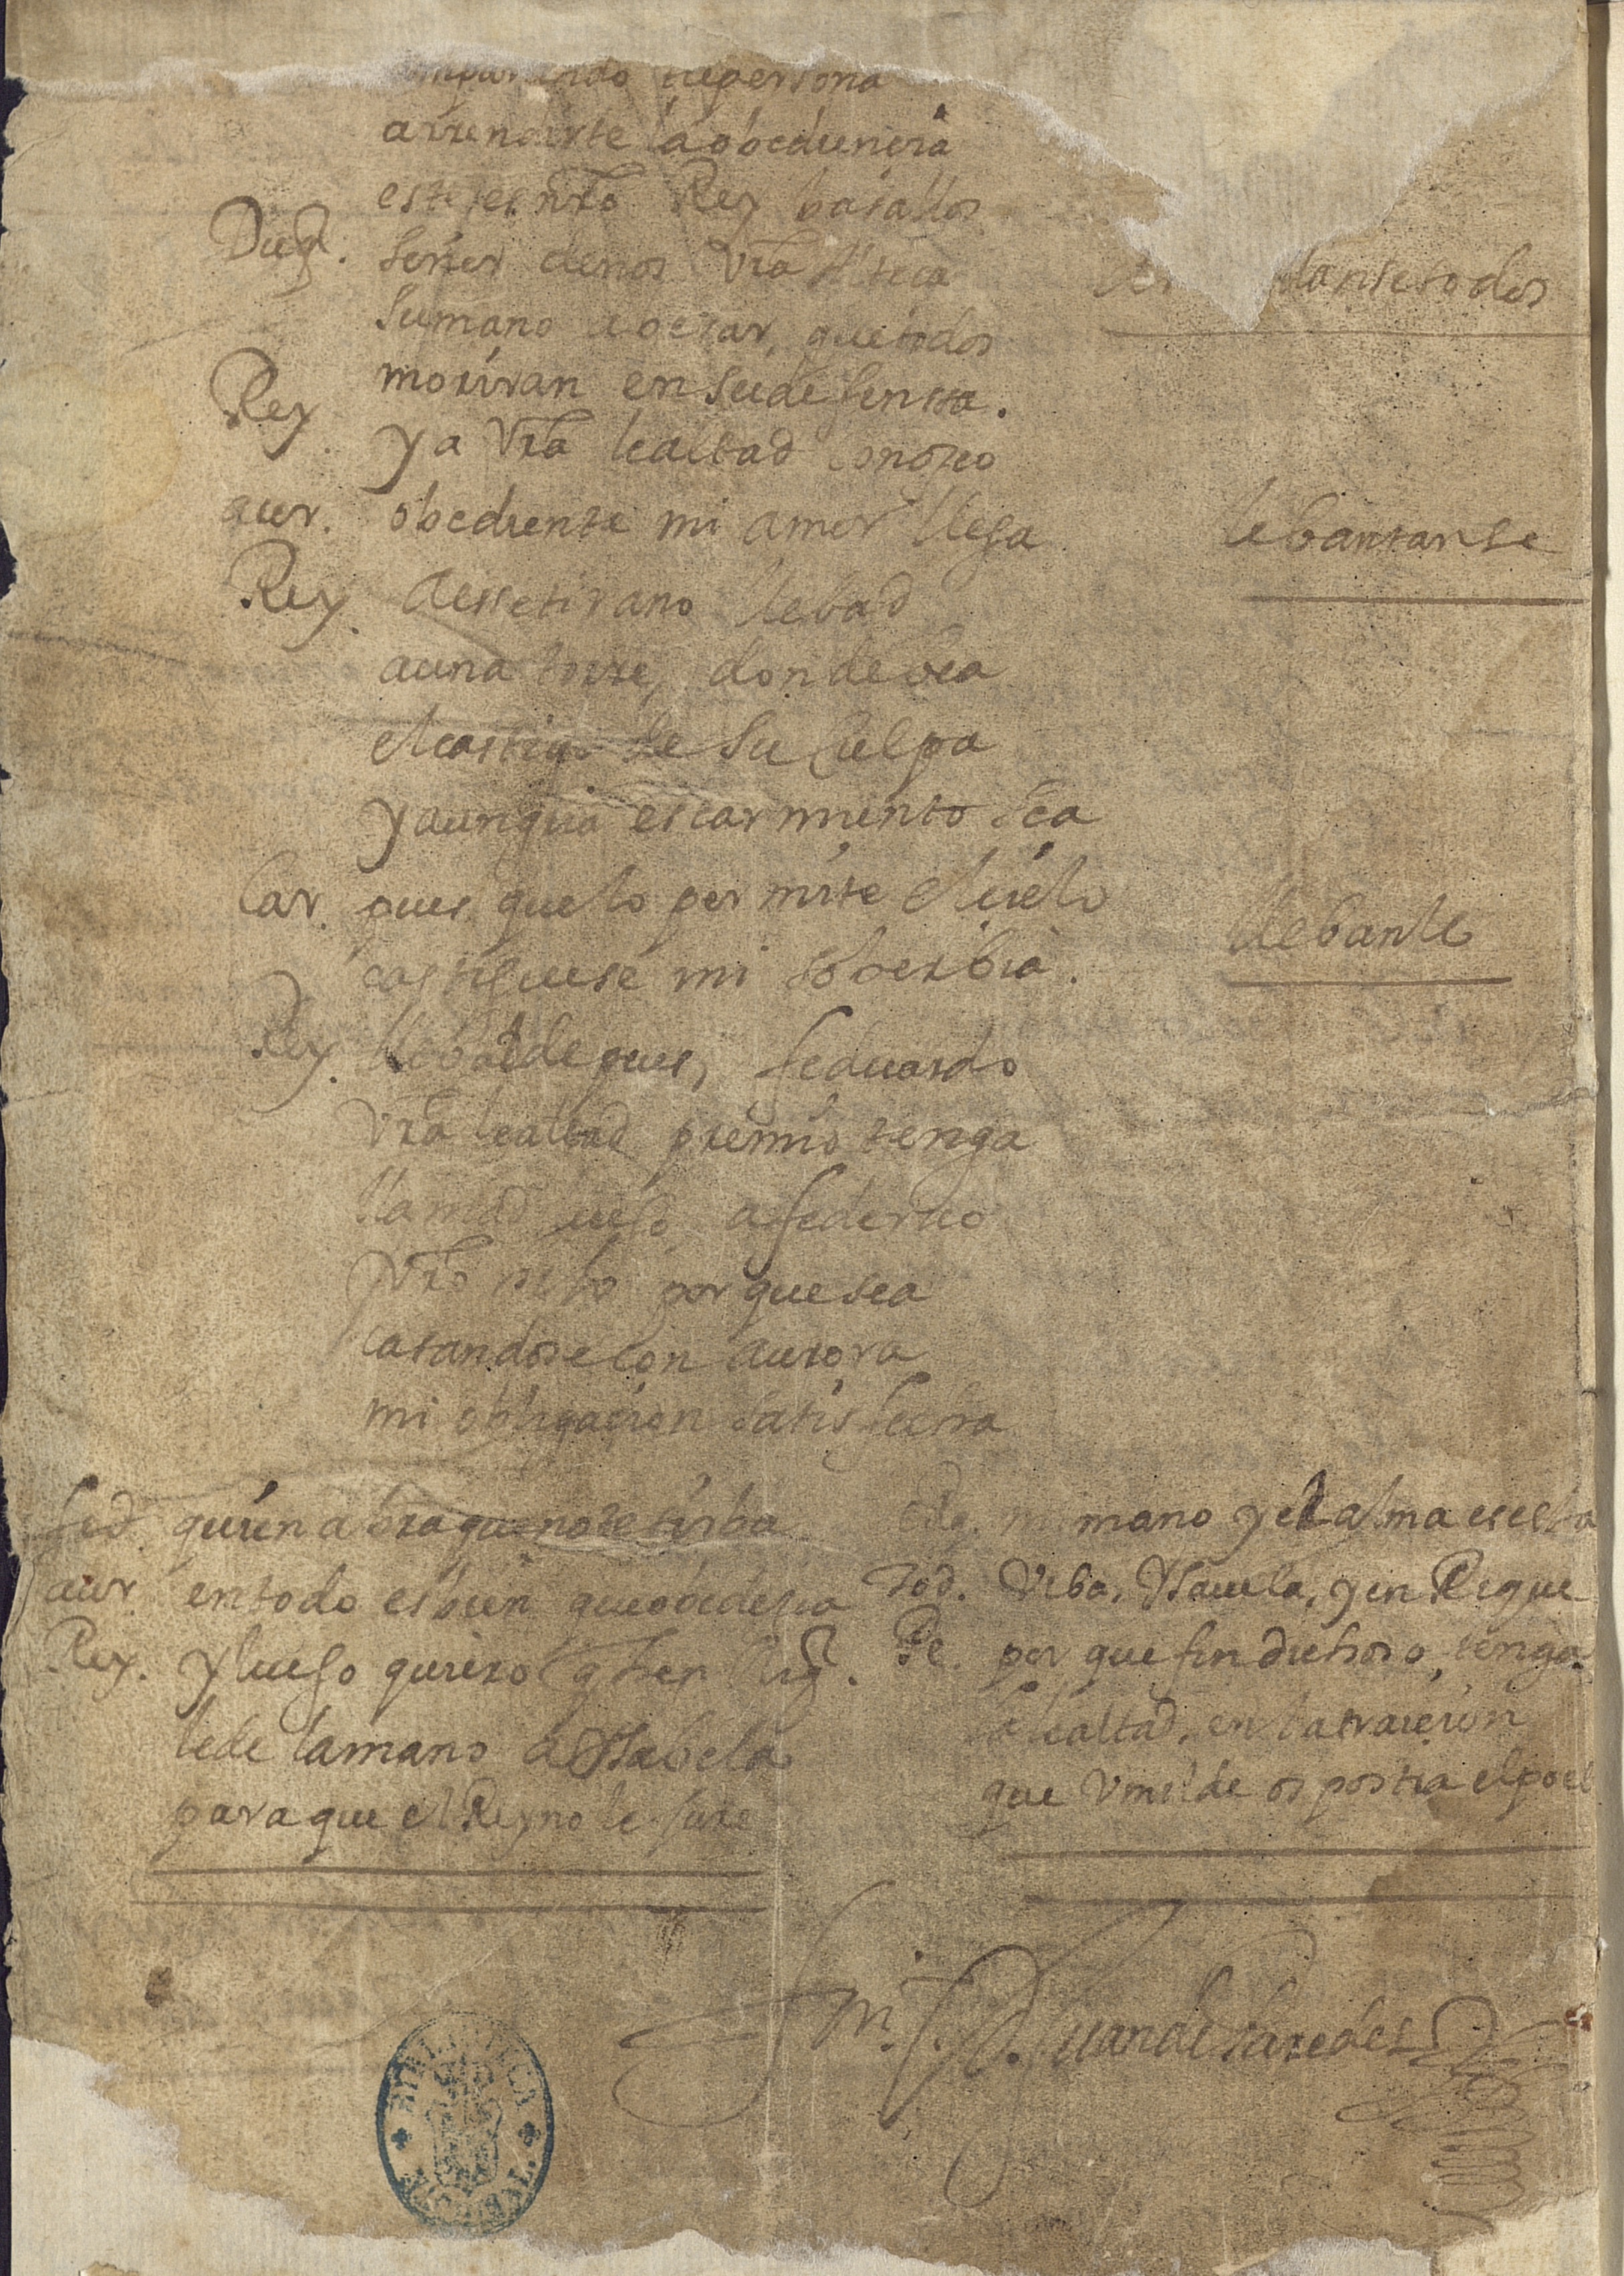 persona
arrendirte la obediencia
este es nro Rey basallos
Dug. señor denos Vra Alteca
su mano a besar, que todos
danse todos
moriran en su defensa.
Rey. ya Vra lealtad conozco
aur. obediente mi amor llega
lebantanse
Rey. a esse tirano llebad
a una torre, donde vea
el castigo de su culpa
y aun que escarmiento sea
Car. pues que lo permite el cielo
castiguese mi soberbia.
llebanle
Rey. llebadle pues, feduardo
Vra lealtad premio tenga
llamad luego a federico
por que sea
casandose con aurora
mi obligacion satisfecha
fed. quien abra que no se
aur. en todo es bien que obedezca
Rey. y luego quiero q
le de la mano a Ysabela
para que el Reyno le jure
mi mano y el alma es esta
Tod. Viba, Ysauela, y en Rique
Fe. por que fin dichoso, tenga
la lealtad, en la traicion
que Vmilde os postra el poet
D. Juan de Paredes
BIBLIOTECA NACIONAL